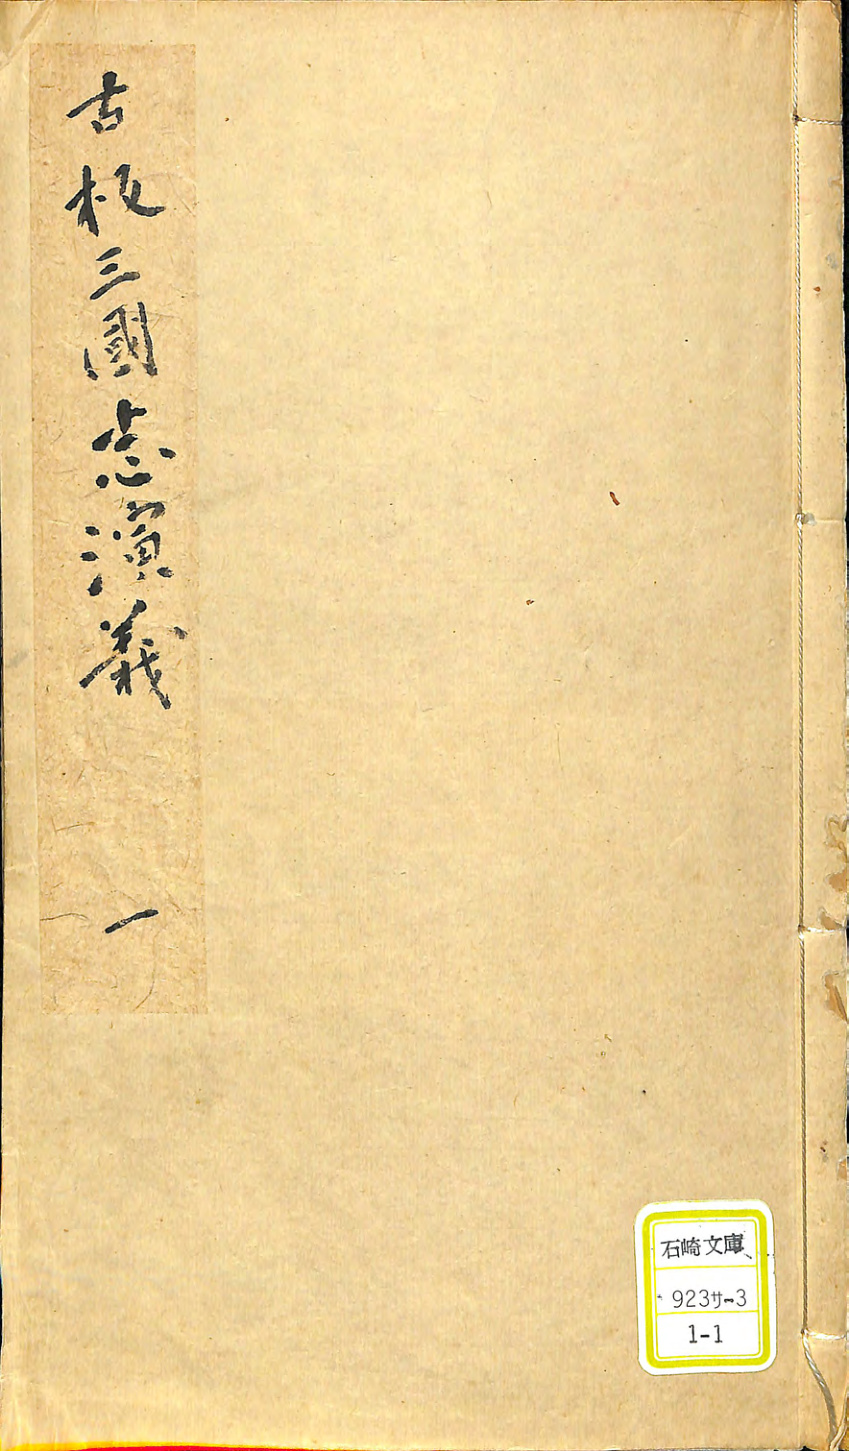 古板三國志演義 一
石崎文庫
923サ-3
1-1